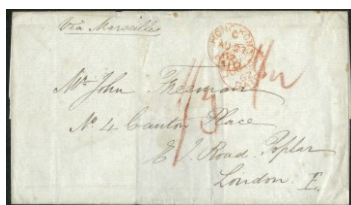 Via Marseilles
HONG KONG
C
AU 27
Mr John Freeman
No. 4 Canton Place
E I Road Poplar
London E.